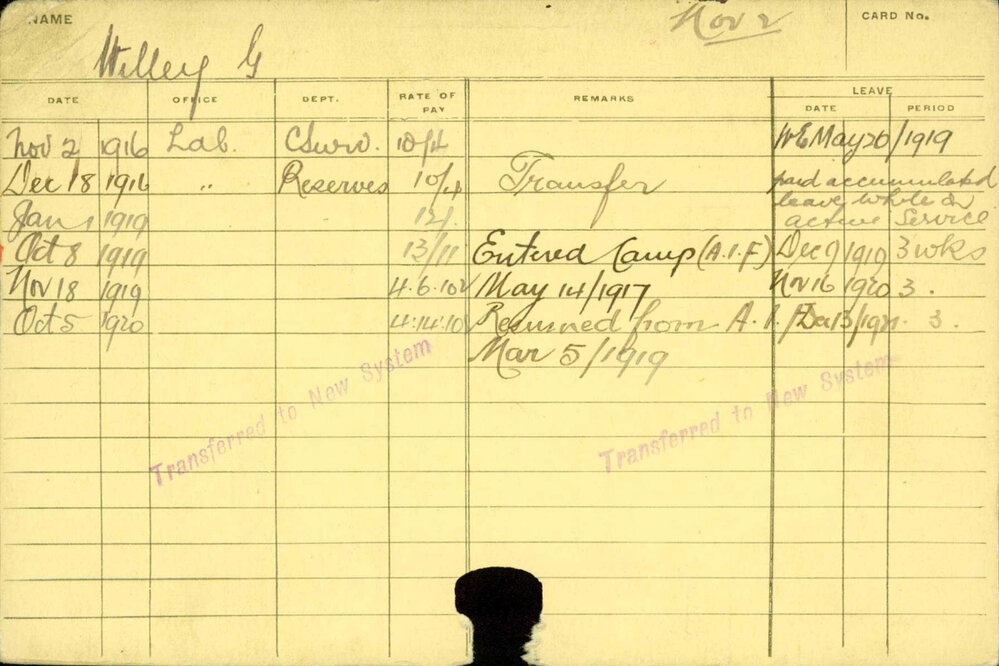 NAME
Nov 2
CARD No.
Willey G
DATE OFFICE DEPT. RATE OF PAY REMARKS LEAVE
DATE PERIOD
Nov 2 1916 Lab. 10/4 WE May 20/1919
Dec 18 1916 " Reserves 10/4 Transfer paid accumulated
leave while on
Jan 1 1919 12/- active Service
Oct 8 1919 13/11 Entered Camp (A.I.F) Dec 1919 3 wks
Nov 18 1919 4.6.10½ May 14/1917 Nov 16 1920 3.
Oct 5 1920 4.14.10½ Resumed from A.I.F Dec 13/1921 3.
Mar 5/1919
Transferred to New System
Transferred to New System